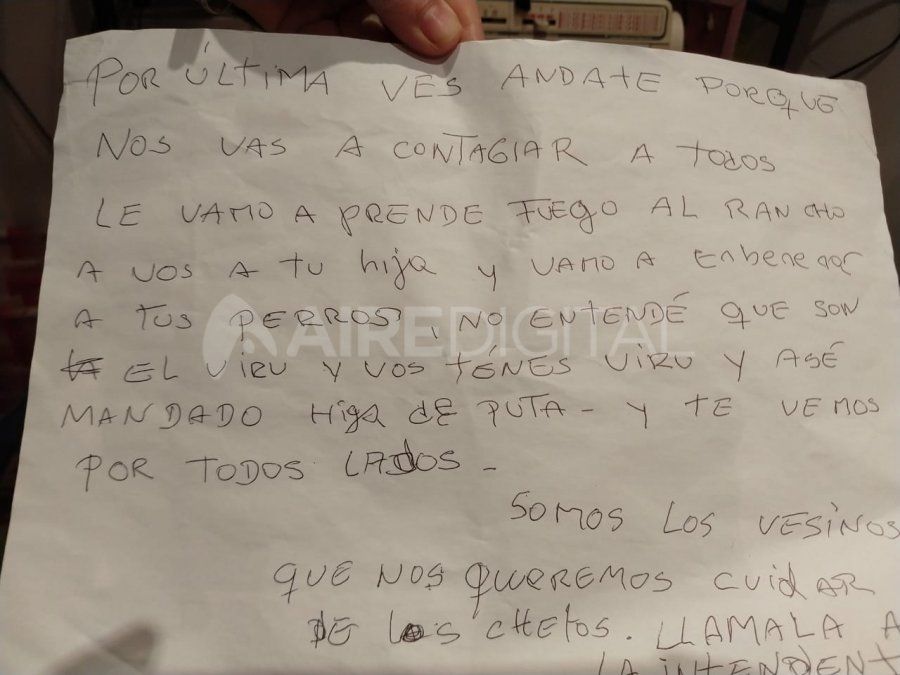 POR ÚLTIMA VES ANDATE PORQUE
NOS VAS A CONTAGIAR A TODOS
LE VAMO A PRENDE FUEGO AL RANCHO
A VOS A TU hija y VAMO A Enbenenar
A TUS PERROS, NO ENTENDÉ QUE SON
EL VIRU Y VOS TÉNES VIRU Y ASÉ
MANDADO Higa dE PUTA - Y TE VEMOS
POR TODOS LADOS -
SOMOS LOS VESINOS
QUE NOS QUEREMOS CUIDAR
DE LOS CHETOS. LLAMALA A
LA INTENDENT
AIREDIGITAL